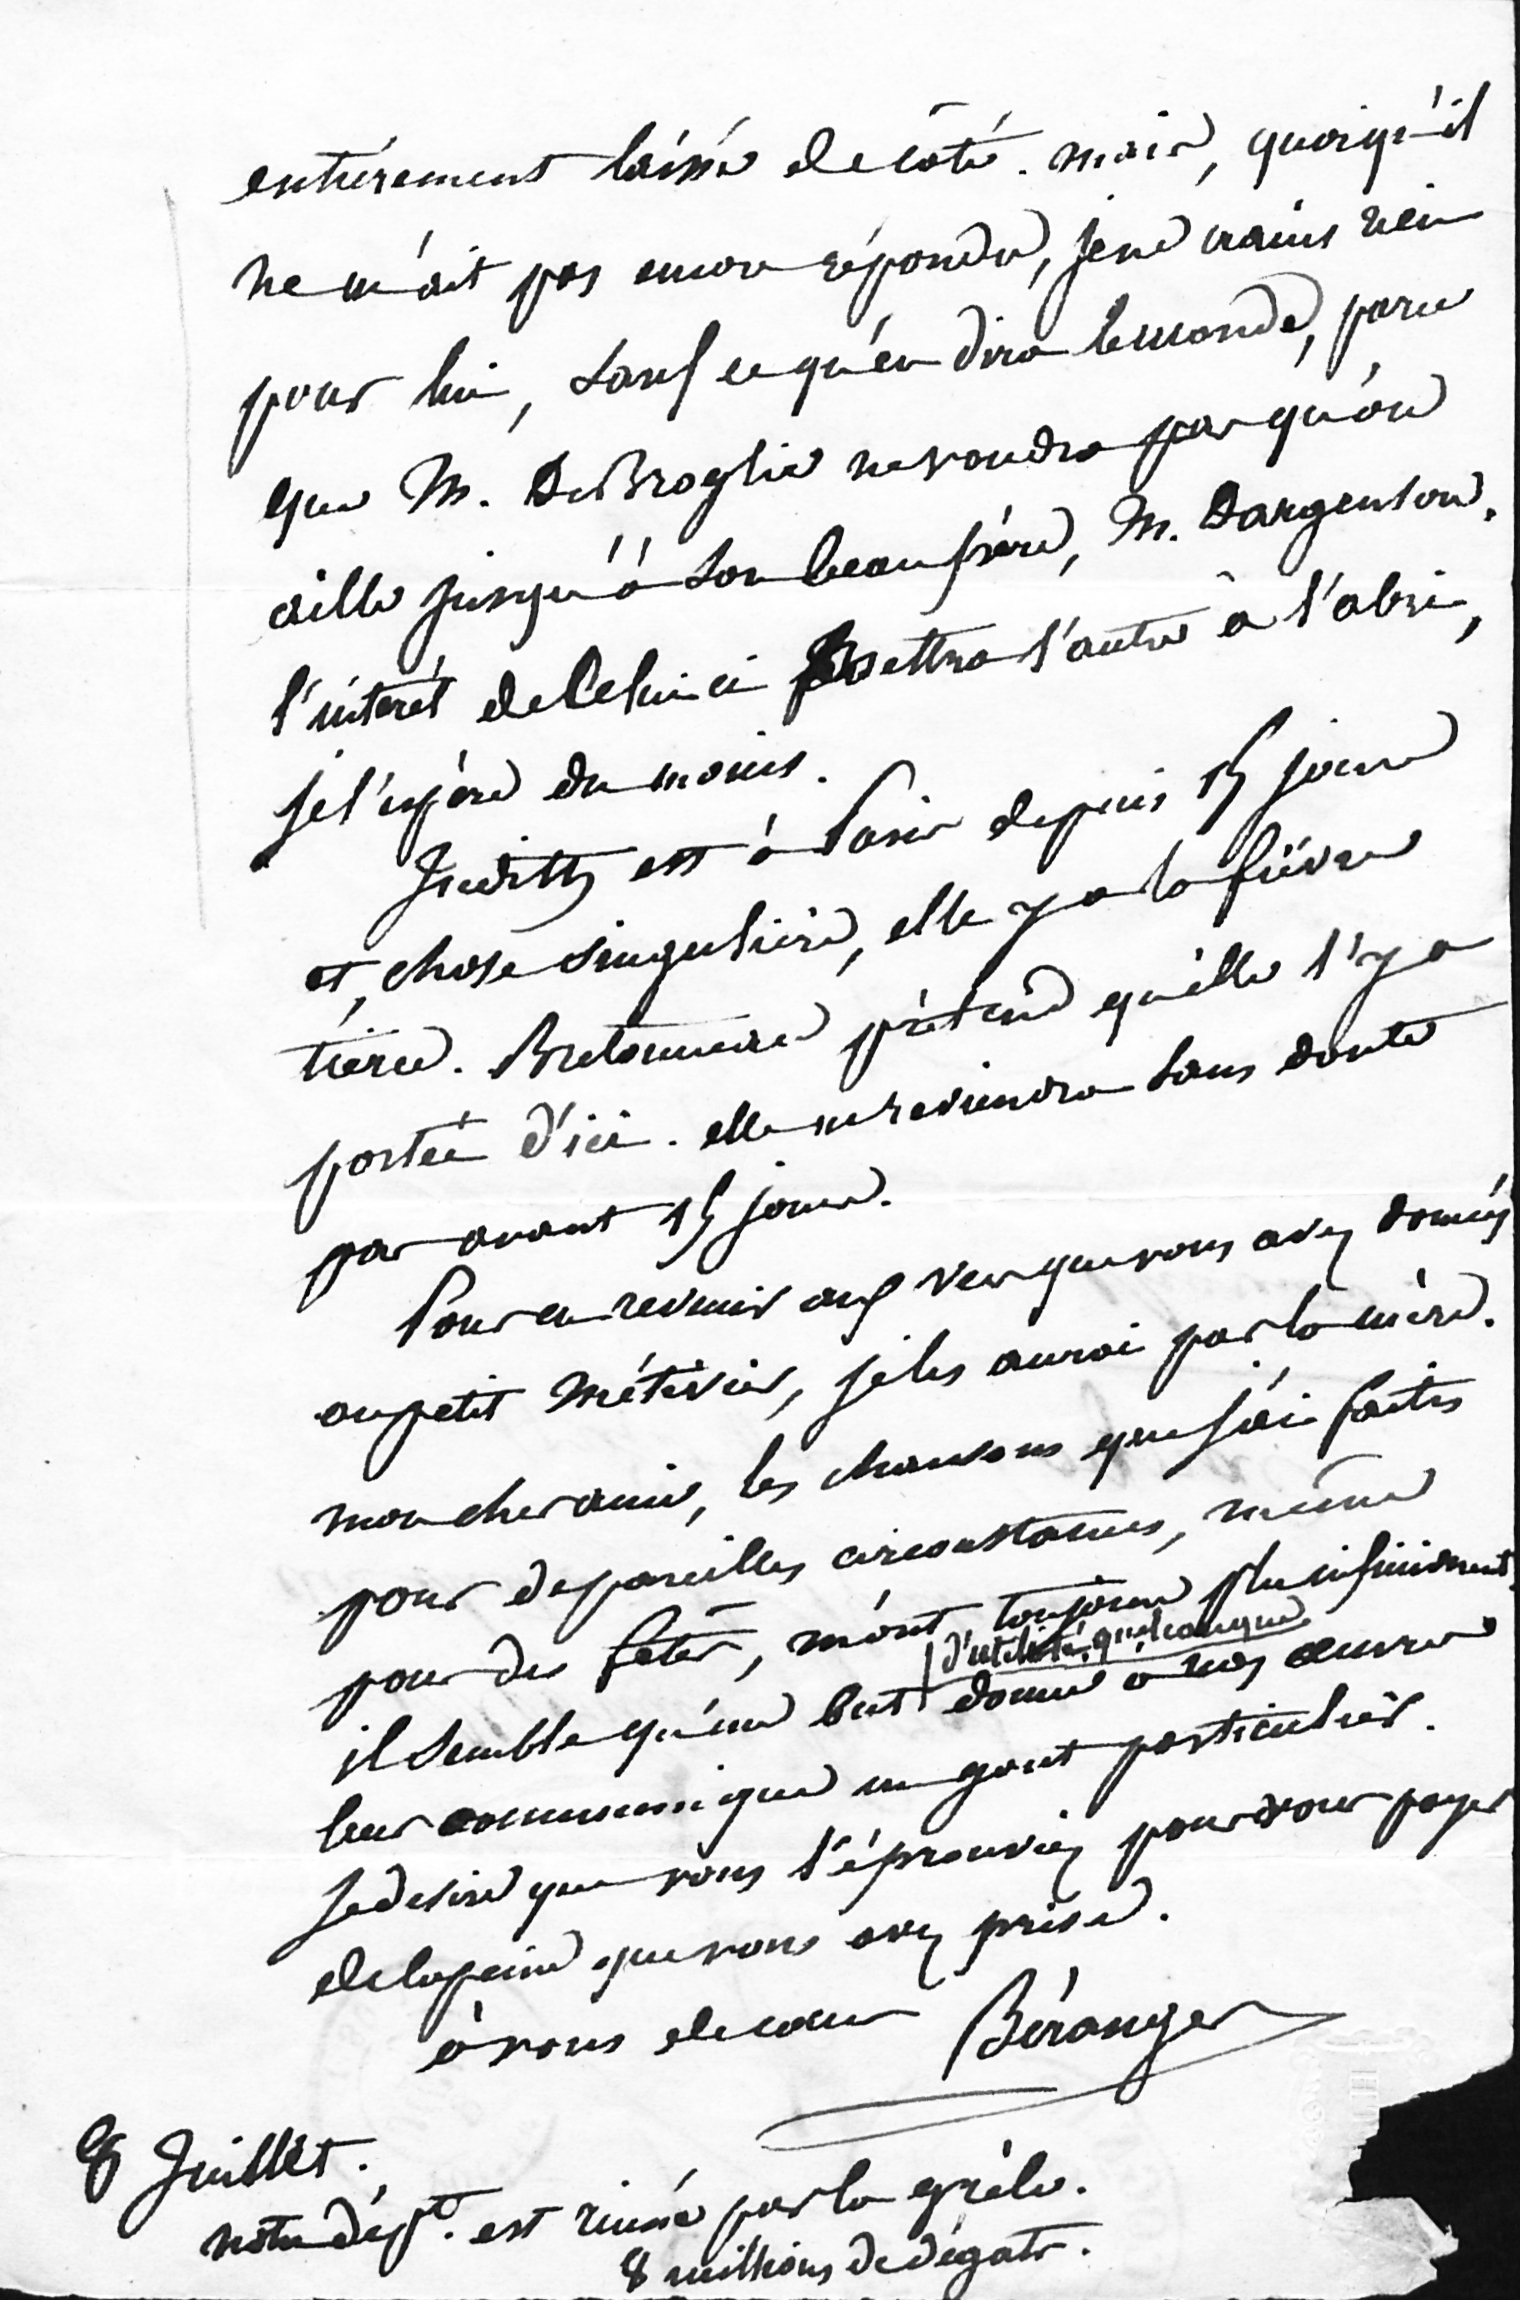 entièrement laissé de côté. mais, quoiqu'il
ne m'ait pas encore répondu, je ne crains rien
pour lui, sauf ce qu'en dira le monde, parce
que M. De Broglie ne voudra pas qu'on
aille jusqu'à son beau frère, M. Dargenson.
l'intérêt de Celui ci mettra l'autre à l'abri,
je l'espère du moins.
Judith est à Paris depuis 15 jours
et, chose singulière, elle y a la fièvre
tierce. Bretonneau prétend qu'elle l'y a
portée d'ici. elle ne reviendra sans doute
pas avant 15 jours.
Pour en revenir aux vers que vous avez donnés
au petit Métivier, je les aurai par la mère.
mon cher ami, les chansons que j'ai faites
pour de pareilles circonstances, même
pour des fêtes, m'ont toujours plu infiniment.
d'utilité quelconque
il semble qu'un but donné à nos œuvres
leur communique un gout particulier.
Je desire que vous l'éprouviez pour vous payer
de la peine que vous avez prise.
à vous de cœur Béranger
8 Juillet.
notre dépt. est ruiné par la grêle.
8 millions de dégats.